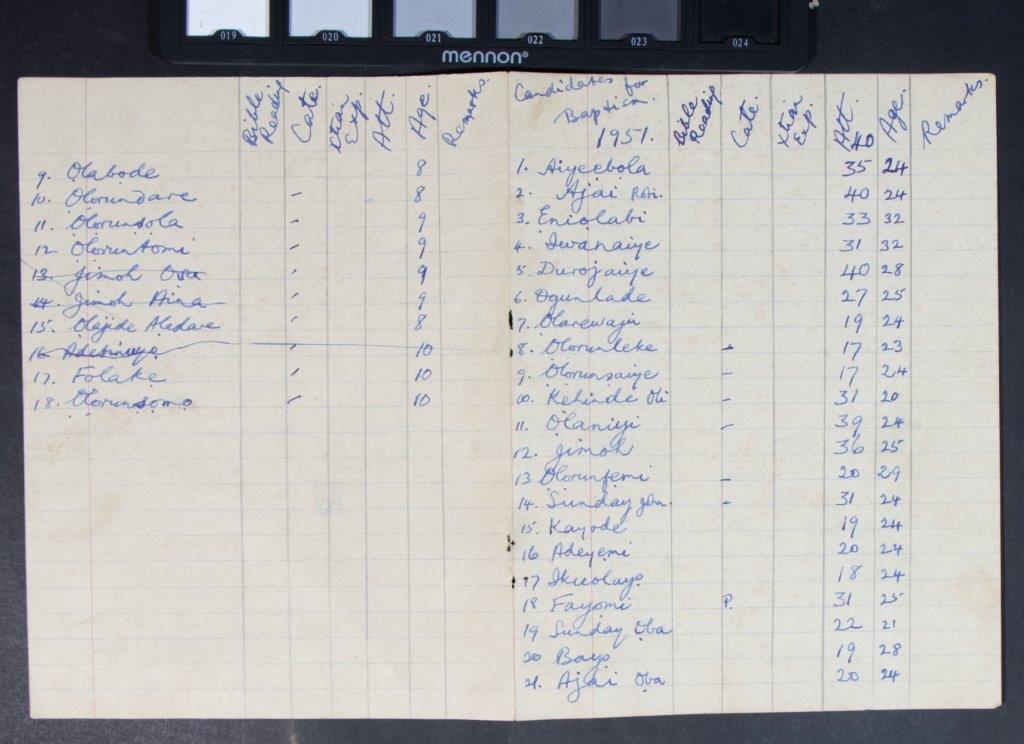 019 020 021 022 023 024
mennon®
Bible Readg Cate. Xtian Exp. Att. Age. Remarks.
9. Olabode 8
10. Olorundare – 8
11. Olorunsola – 9
12 Oloruntomi – 9
13. Jimoh Osu – 9
14. Jimoh Aina – 9
15. Olajide Aledare – 8
16. – 10
17. Folake – 10
18. Olorunsomo – 10
Candidates for
Baptism.
1951. Bible Readg Cate. Xtian Exp. Att 40 Age. Remarks.
1. Aiyeebola 35 24
2. Ajai Roti. 40 24
3. Eniolabi 33 32
4. Iwanaiye 31 32
5. Durojaiye 40 28
6. Ogunlade 27 25
7. Olarewaju 19 24
8. Olorunleke – 17 23
9. Olorunsaiye – 17 24
10. Kehinde Obi – 31 20
11. Olaniyi – 39 24
12. Jimoh 36 25
13 Olorunfemi – 20 29
14. Sunday John. – 31 24
15. Kayode 19 24
16 Adeyemi 20 24
17 Ikuolayo 18 24
18 Fayomi P. 31 25
19 Sunday Oba 22 21
20 Bayo 19 28
21. Ajai Oba 20 24